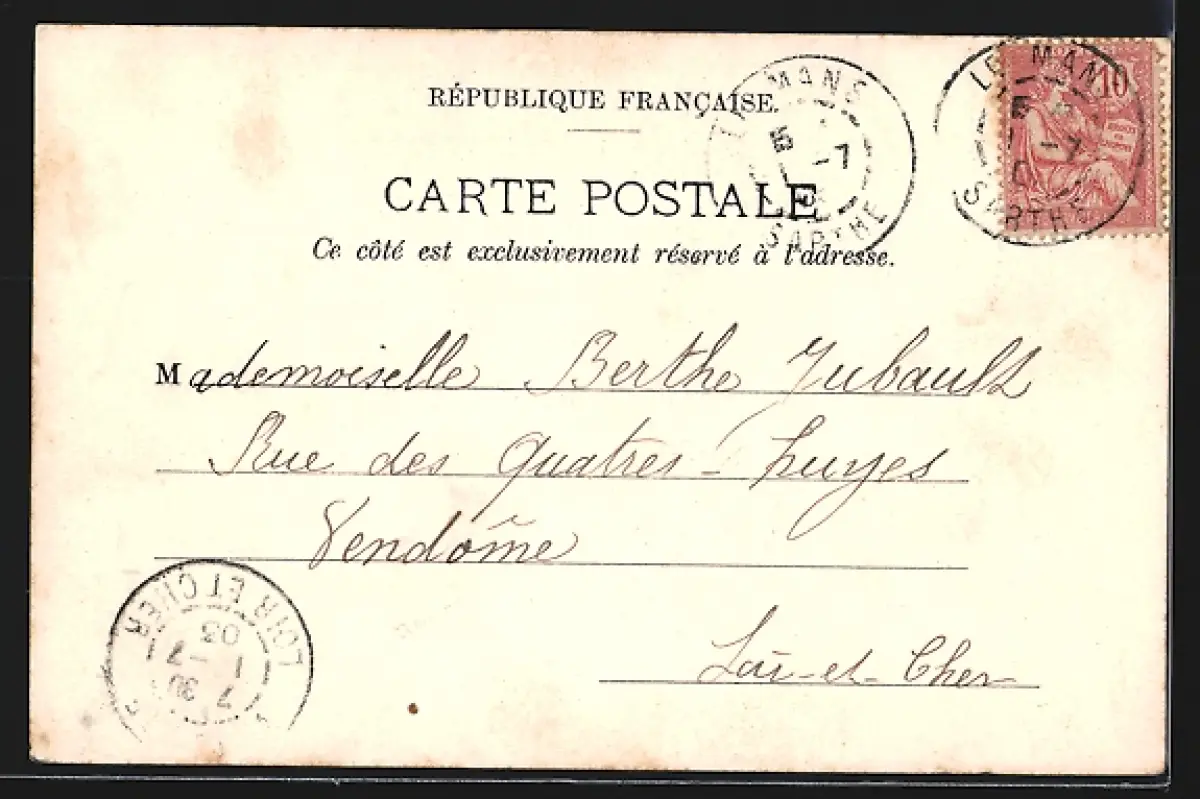 RÉPUBLIQUE FRANÇAISE.
CARTE POSTALE
Ce côté est exclusivement réservé à l'adresse.
LE MANS
-7
SARTHE
LE MANS
-7
SARTHE
10
Mademoiselle Berthe Jubault
Rue des Quatres-huyes
Vendôme
Loir-et-Cher
LOIR ET CHER
7 30
1 -7
03